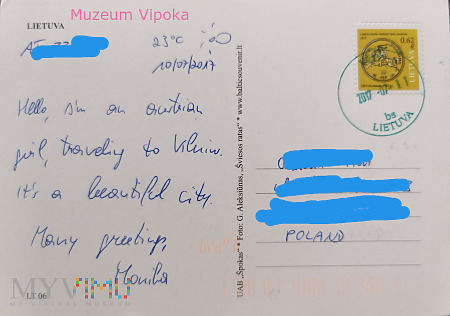 Muzeum Vipoka
LIETUVA
23°C
10/07/2017
Hello, I'm an austrian
girl, traveling to Vilnius.
It's a beautiful city.
Many greetings,
Monika
LT 06
UAB „Spokas“ • Foto: G. Aleksiūnas, „Šviesos ratas“ • www.balticsouvenir.lt
0.62 €
LIETUVA
2017
11
bs
LIETUVA
POLAND
MYVIMU
MY VIRTUAL MUSEUM